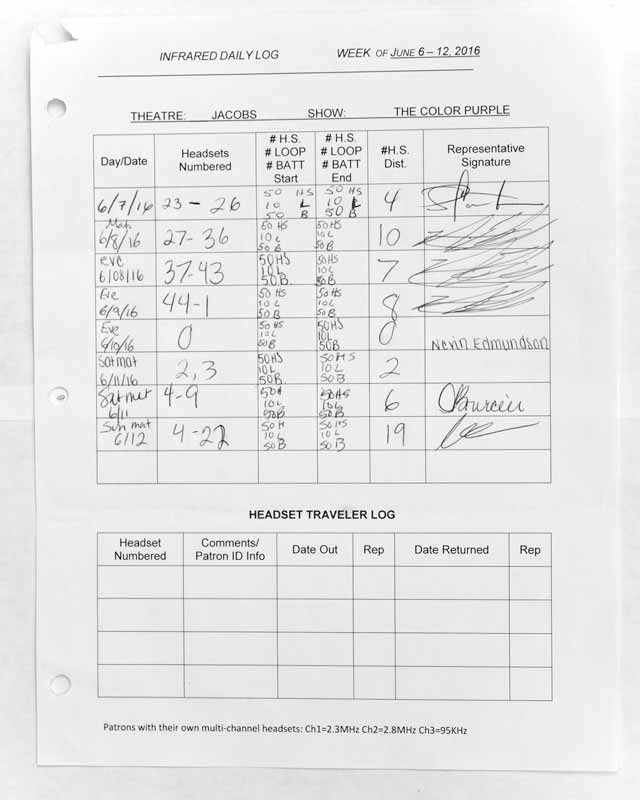 INFRARED DAILY LOG WEEK OF JUNE 6 – 12, 2016
THEATRE: JACOBS SHOW: THE COLOR PURPLE
Day/Date
Headsets Numbered
# H.S. # LOOP # BATT Start
# H.S. # LOOP # BATT End
#H.S. Dist.
Representative Signature
6/7/16 23 - 26 50 HS 10 L 50 B 50 HS 10 L 50 B 4
Mat 6/8/16 27-36 50 HS 10 L 50 B 50 HS 10 L 50 B 10
eve 6/08/16 37-43 50HS 10L 50B. 50HS 10L 50B 7
Eve 6/9/16 44-1 50 HS 10 L 50 B 50 HS 10 L 50 B 8
Eve 6/10/16 0 50 HS 10 L 50B 50HS 10L 50B 0 Nevin Edmundson
Sat mat 6/11/16 2,3 50HS 10L 50B. 50HS 10L 50B 2
6/11 4-9 50H 10L 50B 50HS 10L 50B 6
Sun mat 6/12 4-22 50 H 10 L 50 B 50 HS 10 L 50 B 19
HEADSET TRAVELER LOG
Headset Numbered
Comments/ Patron ID Info
Date Out
Rep
Date Returned
Rep
Patrons with their own multi-channel headsets: Ch1=2.3MHz Ch2=2.8MHz Ch3=95KHz